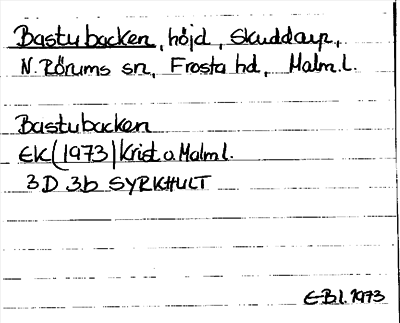 Bastubacken, höjd, Skuddarp,
N. Rörums sn, Frosta hd, Malm.l.
Bastubacken
EK (1973) Krist. o Malm l.
3D 3b SYRKHULT
E.B.l. 1973